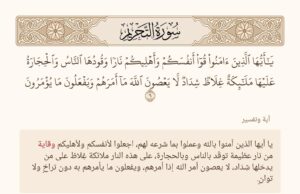 سورة التحريم
يَٰٓأَيُّهَا ٱلَّذِينَ ءَامَنُوا۟ قُوٓا۟ أَنفُسَكُمْ وَأَهْلِيكُمْ نَارًا وَقُودُهَا ٱلنَّاسُ وَٱلْحِجَارَةُ
عَلَيْهَا مَلَٰٓئِكَةٌ غِلَاظٌ شِدَادٌ لَّا يَعْصُونَ ٱللَّهَ مَآ أَمَرَهُمْ وَيَفْعَلُونَ مَا يُؤْمَرُونَ
آية وتفسير
يا أيها الذين آمنوا بالله وعملوا بما شرعه لهم، اجعلوا لأنفسكم ولأهليكم وقاية
من نار عظيمة توقد بالناس وبالحجارة، على هذه النار ملائكة غلاظ على من
يدخلها شداد، لا يعصون أمر الله إذا أمرهم، ويفعلون ما يأمرهم به دون تراخٍ ولا
توان.